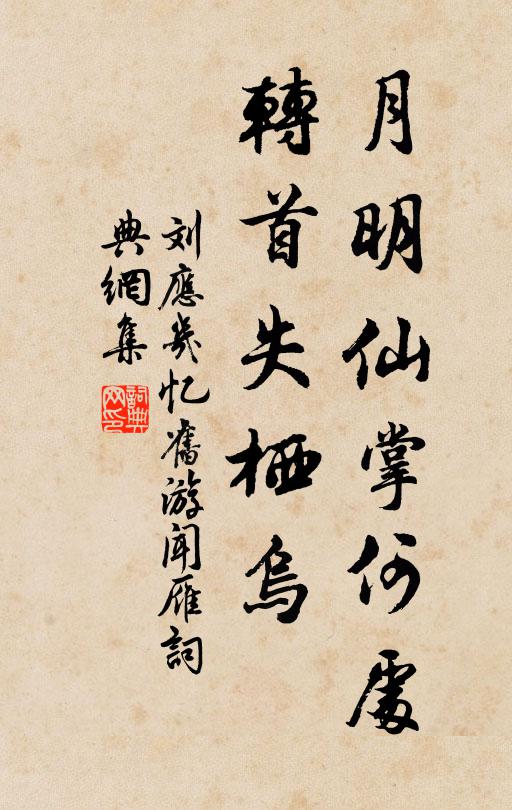 月明仙掌何處
轉首失栖烏
刘應幾忆舊游闻雁詞
典網集
詞典网印